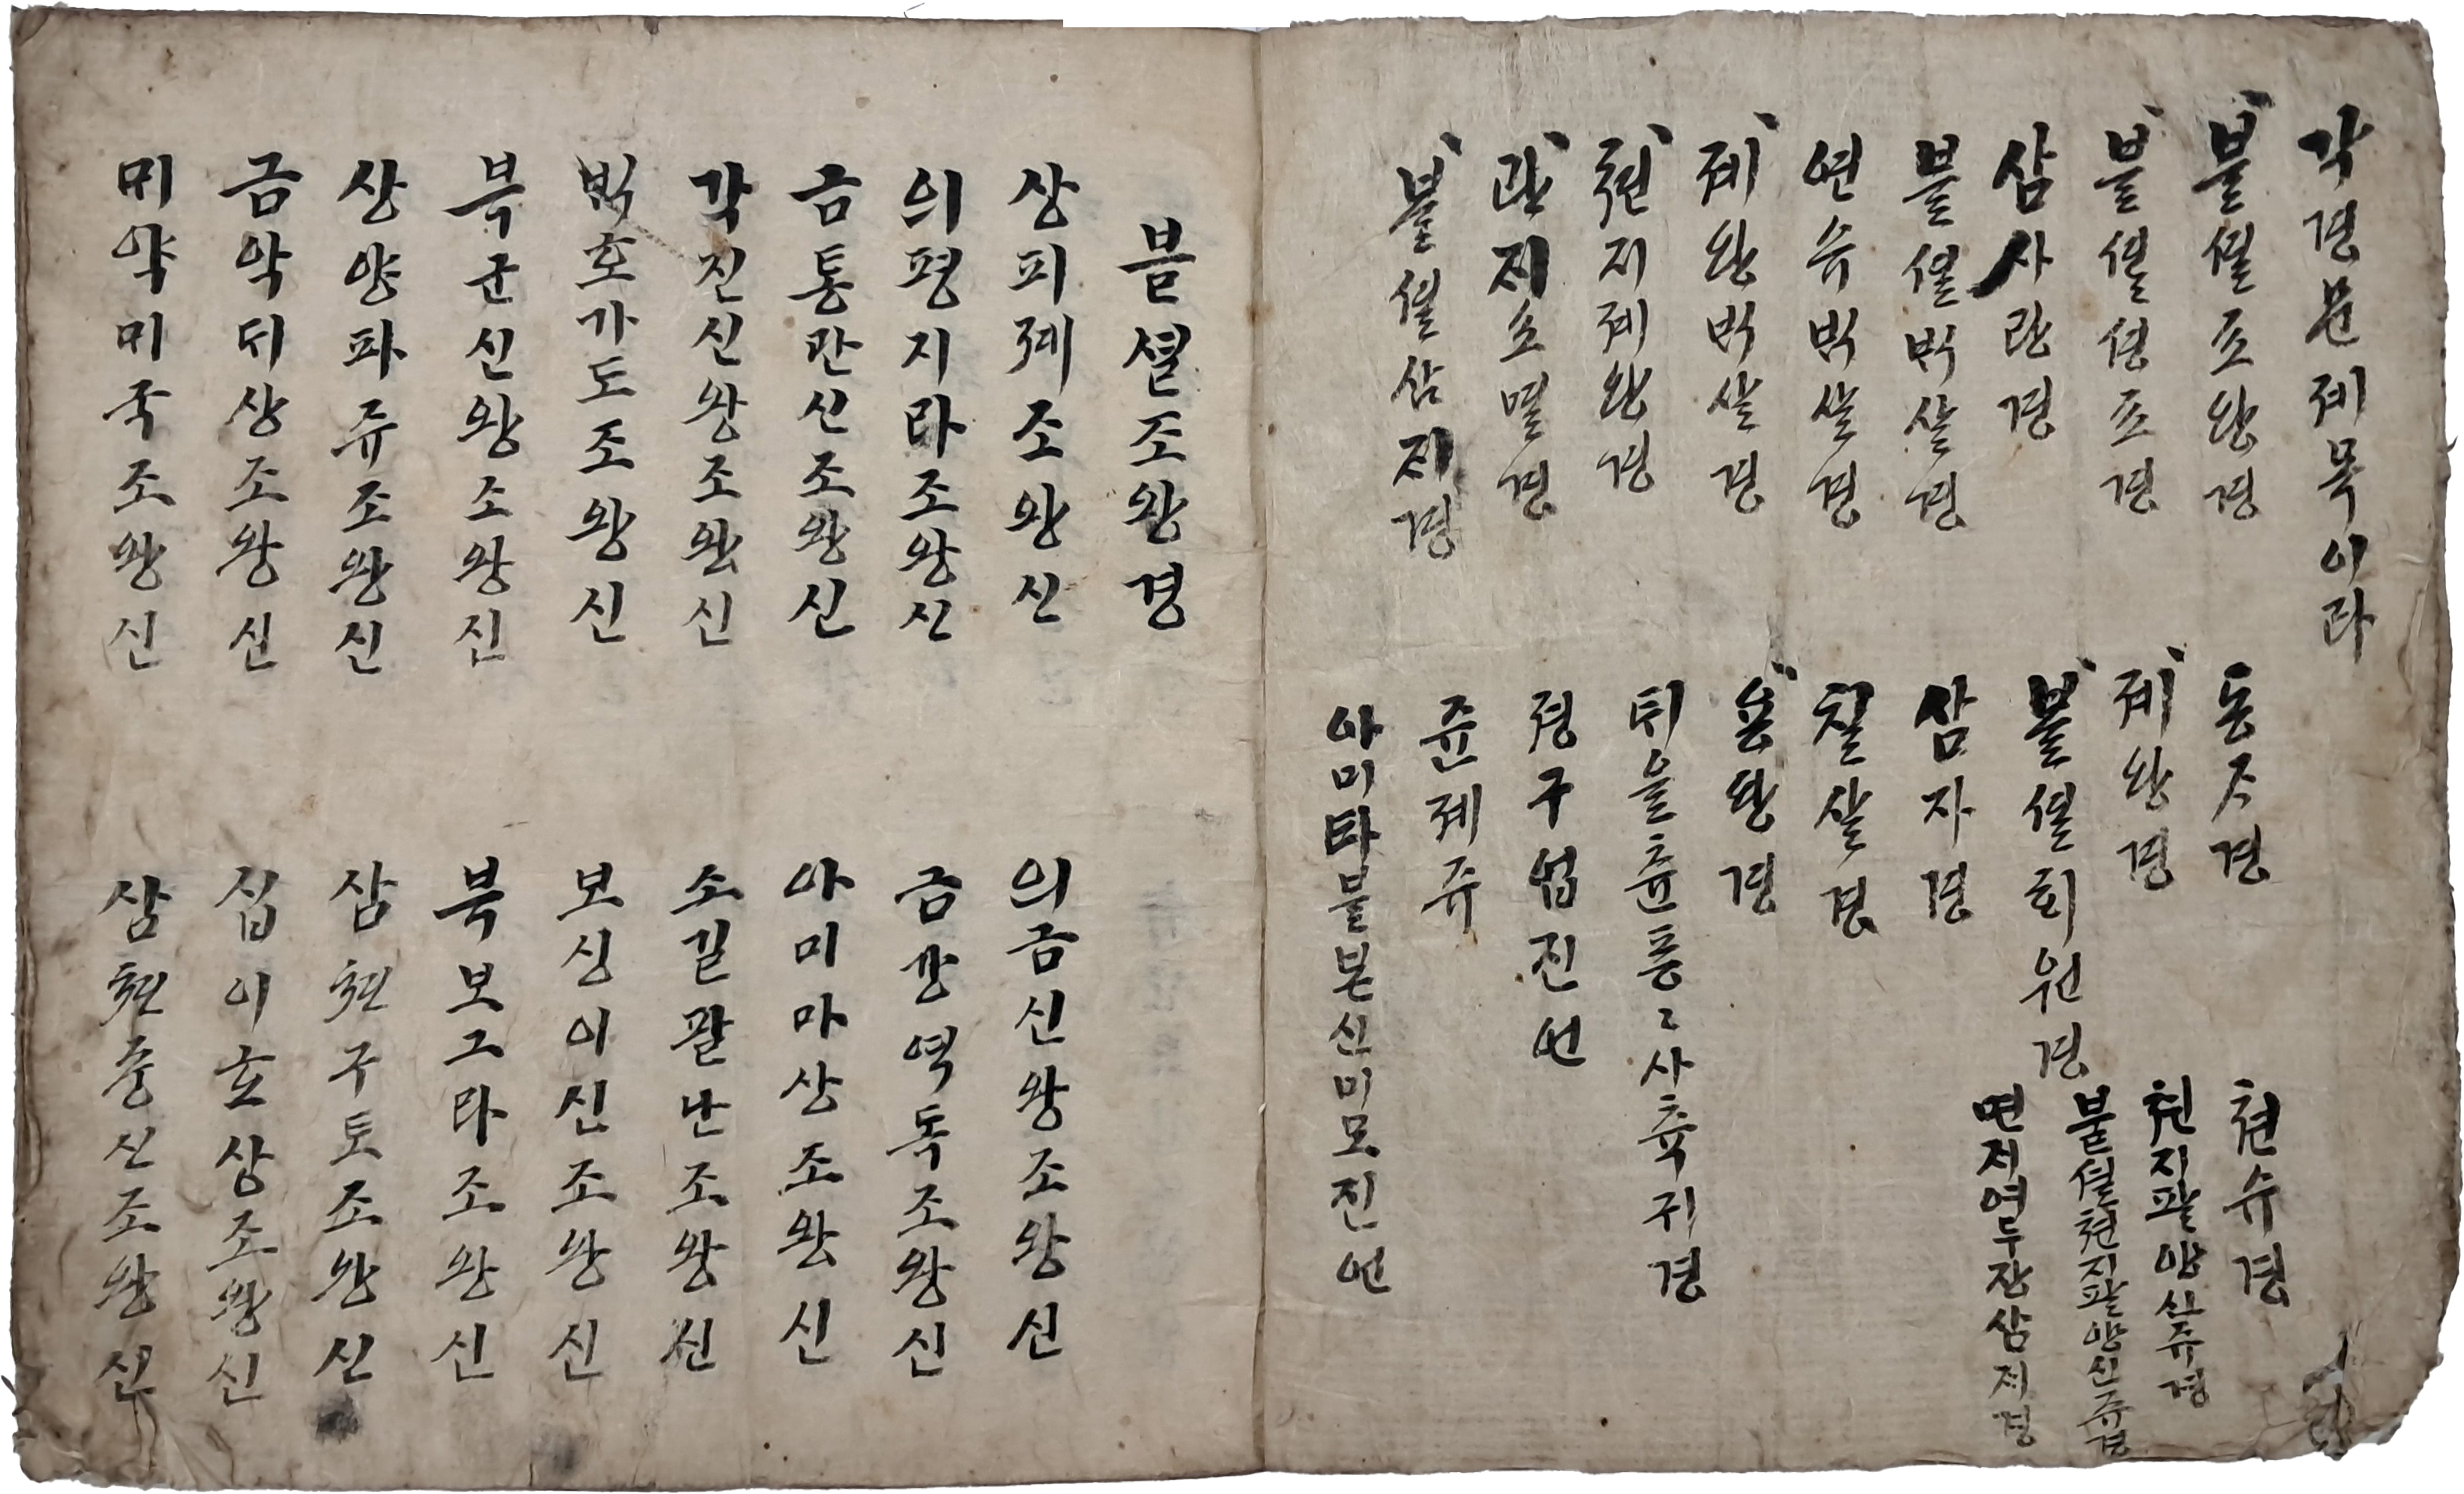 각경문제목이라
불셜조왕경
불셜셩조경
삼사란경
불셜ᄇᆡᆨ살경
연슈ᄇᆡᆨ살경
제왕ᄇᆡᆨ살경
쳔지제왕경
관ᄌᆡ소멸경
불셜삼ᄌᆡ경
동ᄌᆞ경
제왕경
불셜회원경
삼자경
칠살경
용왕경
ᄐᆡ을츅풍〻사츅귀경
졍구업진언
쥰제쥬
아미타불본신미모진언
쳔슈경
쳔지팔양신쥬경
불셜쳔지팔양신쥬경
면저여두장삼저경
불셜조왕경
상피제조왕신
의평지라조왕신
금통관신조왕신
각진신왕조왕신
ᄇᆡᆨ호가도조왕신
북군신왕조왕신
상양파쥬조왕신
금악ᄃᆡ상조왕신
ᄆᆡ약ᄆᆡ국조왕신
의금신왕조왕신
금강역독조왕신
아미마상조왕신
소길팔난조왕신
보싱이신조왕신
북보그라조왕신
삼쳔구토조왕신
십이호상조왕신
삼쳔즁신조왕신